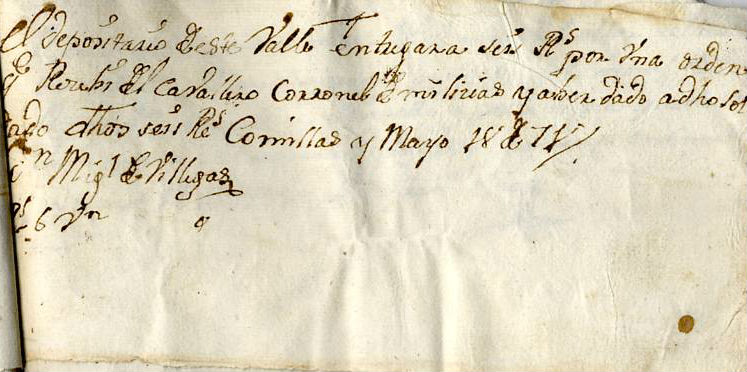 El depositario de este Valle Entregara seis Rs por Una orden
q Reciui del Cavallero Corronel de milicias y aver dado a dho Sol
dado dhos seis Rs Comillas y Mayo 18 de 71
Migl de Villegas
Rs 6 Vn